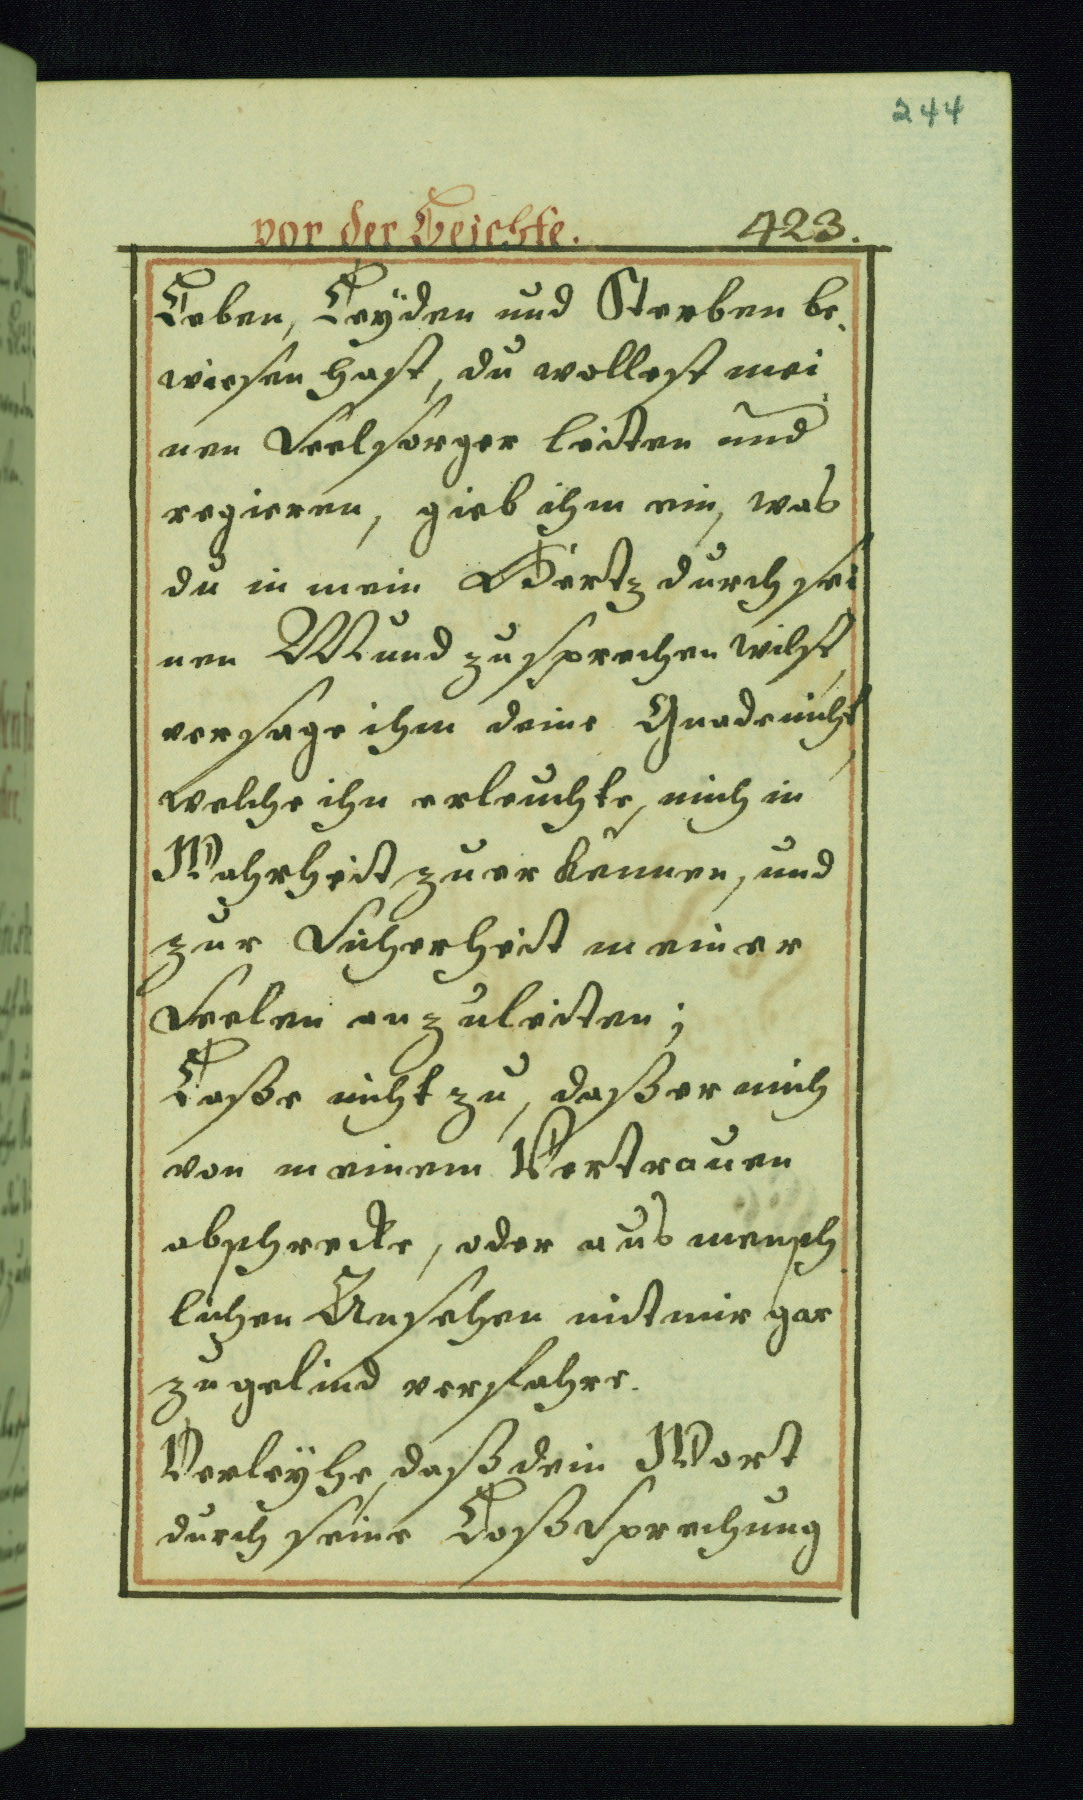 244
vor der Beichte. 423.
Leben, Leÿden und Sterben be,
wiesen hast, du wollest mei
nen Seelsorger leiten und
regieren, gieb ihm ein, was
du in mein Hertz durch sei
nen Mund zusprechen wilst,
versage ihm deine Gnade nicht,
welche ihn erleuchte, mich in
Wahrheit zuerkennen, und
zur Sicherheit meiner
Seelen anzuleiten;
Laße nicht zu, daß er mich
von meinem Vertrauen
abschrecke, oder aus mensch
lichen Ansehen mit mir gar
zugelind verfahre.
Verleÿhe, daß dein Wort
durch seine Loßsprechung